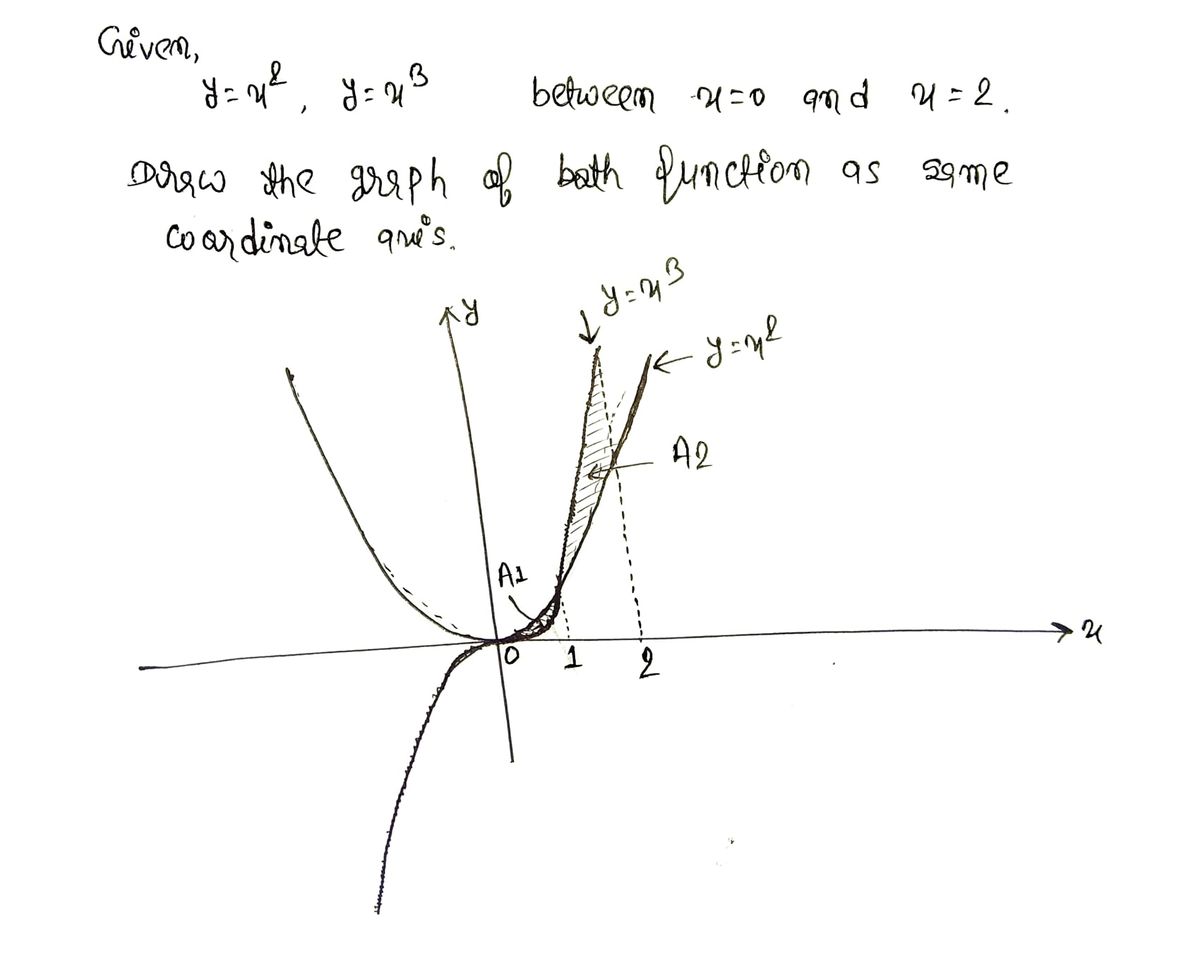 Given,
y=x², y=x³ between x=0 and x=2.
Draw the graph of both function as same
coordinate axis.
y
y=x³
y=x²
A2
A1
0 1 2
x